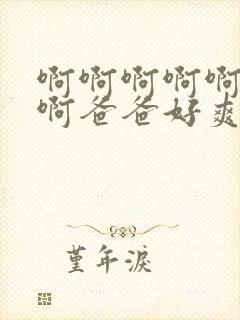 啊啊啊啊啊
啊爸爸好爽
堇年淚